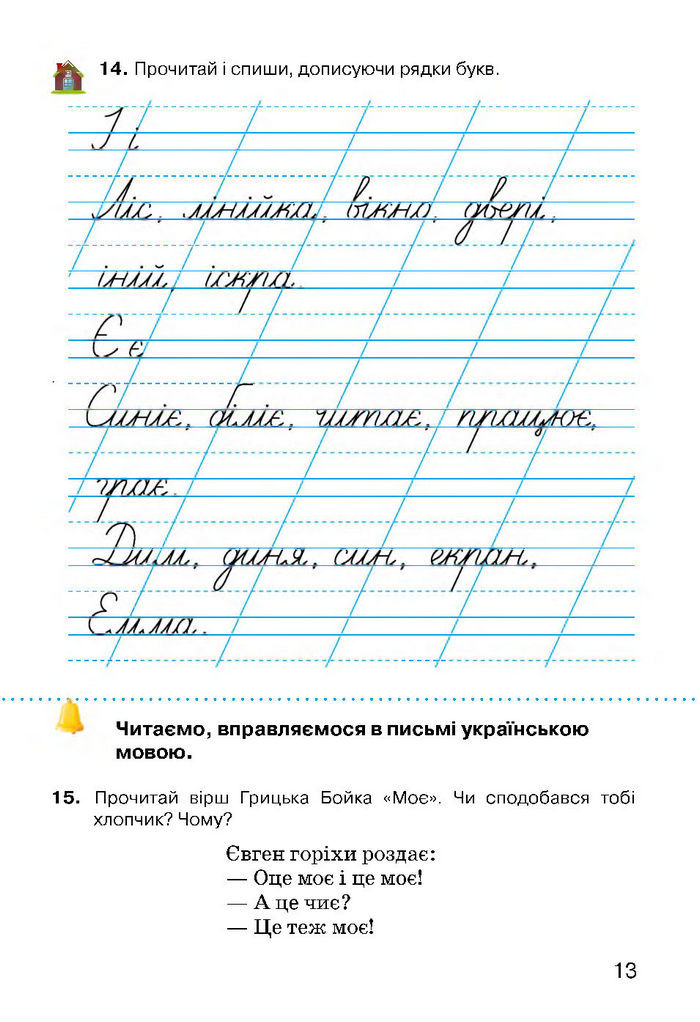 14. Прочитай і спиши, дописуючи рядки букв.
І і
Ліс, лінійка, вікно, двері,
іній, іскра.
Є є
Синіє, біліє, читає, працює,
грає.
Дим, диня, син, екран,
Емма.
Читаємо, вправляємося в письмі українською
мовою.
15. Прочитай вірш Грицька Бойка «Моє». Чи сподобався тобі
хлопчик? Чому?
Євген горіхи роздає:
— Оце моє і це моє!
— А це чиє?
— Це теж моє!
13